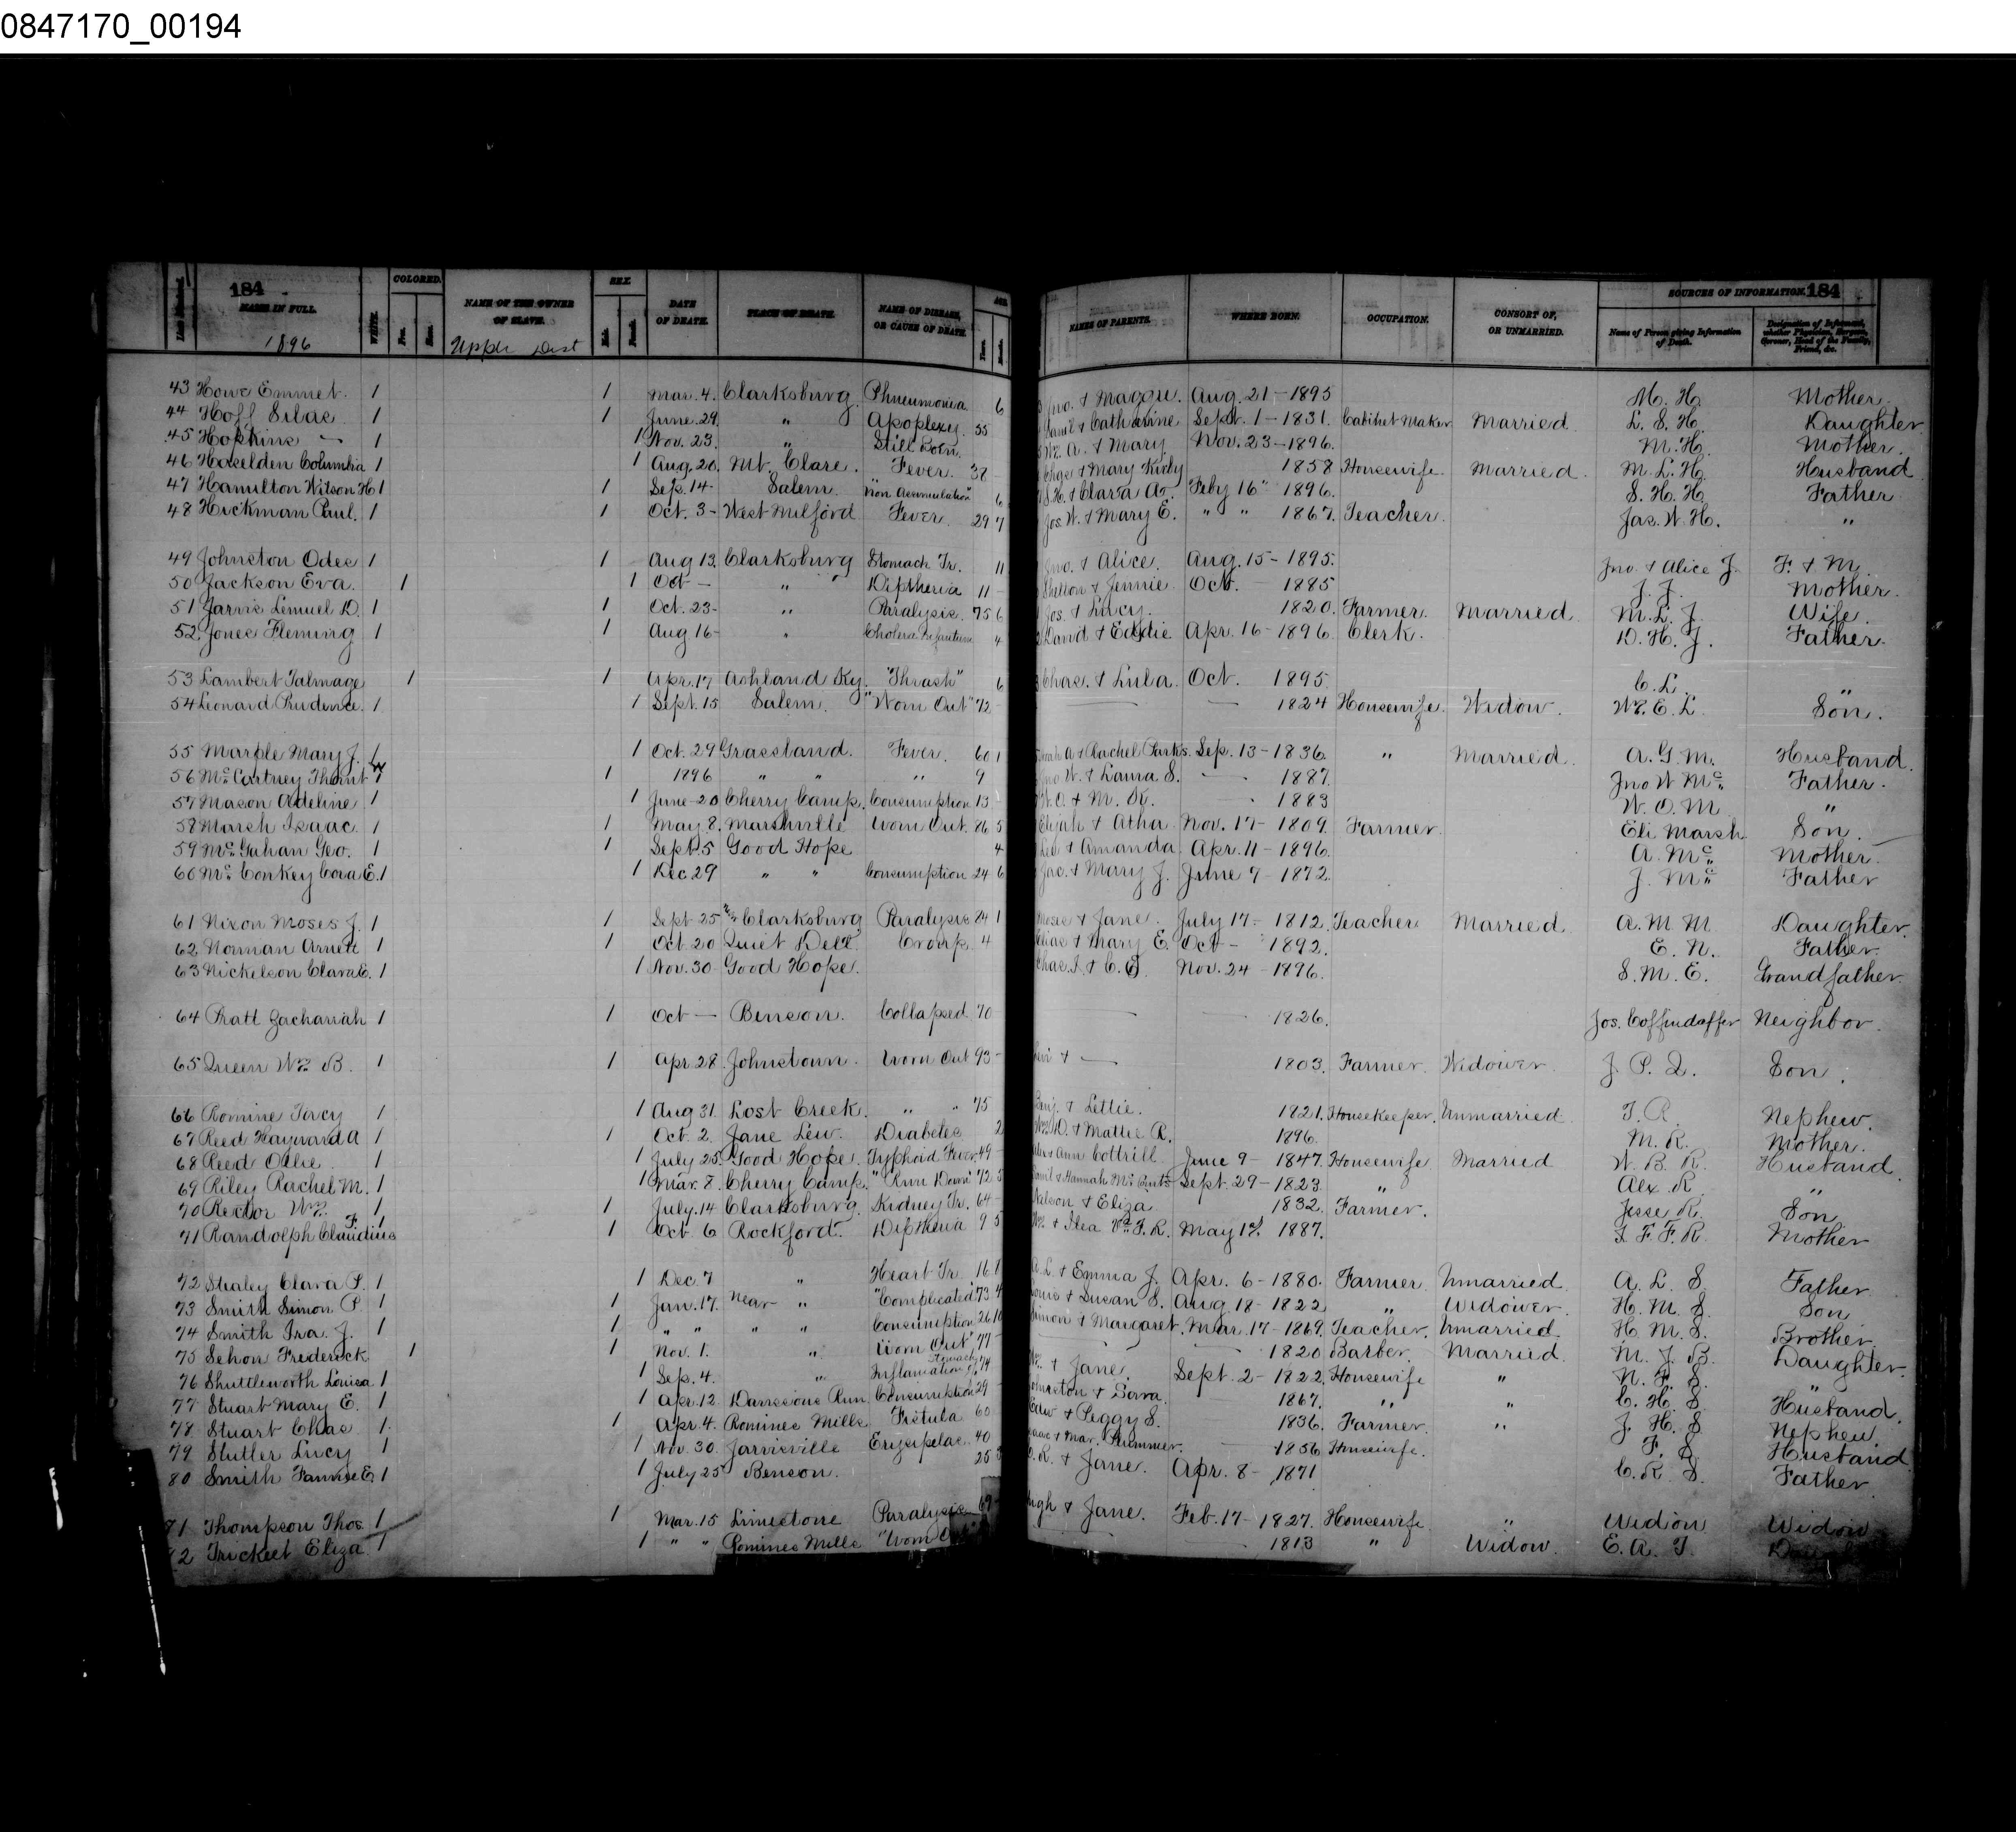 0847170_00194
184 COLORED. SEX. AGE SOURCES OF INFORMATION. 184
NAME IN FULL. WHITE. Free. Slave. NAME OF THE OWNER OF SLAVE. Male. Female. DATE OF DEATH. PLACE OF DEATH. NAME OF DISEASE, OR CAUSE OF DEATH. Years. Months. NAMES OF PARENTS. WHERE BORN. OCCUPATION. CONSORT OF, OR UNMARRIED. Name of Person giving Information of Death. Designation of Informant, whether Physician, Surgeon, Coroner, Head of the Family, Friend, &c.
1896 Dist
43 Howe Emmet. 1 1 Mar. 4. Clarksburg. Phneumonia. 6 Jno. & Maggie. Aug. 21-1895 M. H. Mother.
44 Hoff Silas 1 1 June. 29. " Apoplexy. 55 & Catharine Sept. 1-1831. Cabinet Maker Married L. S. H. Daughter
45 Hopkins — 1 1 Nov. 23. " Still Born. Wm. A. & Mary Nov. 23-1896. M. H. Mother.
46 Haselden Columbia 1 1 Aug. 20. Mt. Clare. Fever. 38 Chas & Mary Kirby 1858 Housewife. Married. M. L. H. Husband
47 Hamilton Witson H 1 1 Sep. 14- Salem. 6 S. H. & Clara A. Feby 16" 1896. S. H. H. Father
48 Hickman Paul. 1 1 Oct. 3- West Milford Fever. 29 7 Jas. W. & Mary E. " " 1867. Teacher. Jas. W. H. "
49 Johnston Odec 1 1 Aug 13. Clarksburg Stomach Tr. 11 Jno. & Alice. Aug. 15-1895. Jno. & Alice J. F. & M.
50 Jackson Eva. 1 1 Oct — " Diptheria 11 - Shelton & Jennie Oct. - 1885 J. J. Mother.
51 Jarvis Lemuel D. 1 1 Oct. 23- " Paralysis. 75 6 Jos. & Lucy. 1820. Farmer. Married M. L. J. Wife.
52 Jones Fleming 1 1 Aug 16- " Cholera Infantum 4 David & Eddie Apr. 16-1896. Clerk. D. H. J. Father.
53 Lambert Talmage 1 1 Apr. 17 Ashland Ky. "Thrash" 6 Chas. & Lula. Oct. 1895. C. L.
54 Leonard Prudence. 1 1 Sept. 15 Salem. "Worn Out" 72 - — — 1824 Housewife. Widow. Wm. E. L. Son.
55 Marple Mary J. 1 1 Oct. 29 Grassland. Fever. 60 1 & Rachel Parks. Sep. 13-1836. " Married. A. G. M. Husband.
56 McCartney Thornt 1 1 1896 " " " 9 Jno W. & Laura S. — 1887. Jno W Mc. Father.
57 Mason Adeline 1 1 June-20 Cherry Camp. Consumption 13 W. O. & M. K. - 1883 W. O. M. "
58 Marsh Isaac. 1 1 May 8. Marshville Worn Out. 86 5 Elijah & Atha Nov. 17-1809. Farmer. Eli Marsh. Son.
59 McGahan Geo. 1 1 Sept. 5 Good Hope 4 & Amanda Apr. 11-1896. A. Mc. Mother.
60 McConkey Cora E. 1 1 Dec. 29 " " Consumption 24 6 Jac. & Mary J. June 7-1872. J. Mc. Father
61 Nixon Moses J. 1 1 Sept-25 near Clarksburg Paralysis 84 1 Moses & Jane. July 17-1812. Teacher Married A. M. M. Daughter.
62 Norman Arnett 1 1 Oct. 20 Quiet Dell. Croup. 4 Elias & Mary E. Oct - 1892. E. N. Father.
63 Nickelson Clara E. 1 1 Nov. 30- Good Hope. Chas. I. & C. E. Nov. 24-1896. S. M. E. Grandfather.
64 Pratt Zachariah 1 1 Oct — Benson. Collapsed. 70 — — 1826. Jos. Coffindaffer Neighbor.
65 Queen Wm. B. 1 1 Apr. 28. Johnstown. Worn Out 93 - Levi & — 1803. Farmer. Widower. J. P. Q. Son.
66 Romine Torcy 1 1 Aug 31. Lost Creek. " " 75 Benj. & Lettie. 1821. Housekeeper. Unmarried T. R. Nephew.
67 Reed Hayward A 1 1 Oct. 2. Jane Lew. Diabetes 2 Wm. D. & Mattie R. 1896. M. R. Mother.
68 Reed Ollie. 1 1 July 25. Good Hope. Typhoid Fever. 49 - & Ann Cottrill. June 9-1847. Housewife Married W. B. R. Husband.
69 Riley Rachel M. 1 1 Mar. 8. Cherry Camp. "Run Down" 72 5 & Hannah Sept. 29-1823. " Alex. R "
70 Rector Wm. 1 1 July. 14 Clarksburg. Kidney Tr. 64 - Nelson & Eliza 1832. Farmer. Jesse R. Son
71 Randolph Claudius F. 1 1 Oct. 6 Rockford. Diptheria 9 5 Wm. & F. R. May 1st. 1887. I. F. F. R. Mother
72 Stealey Clara P. 1 1 Dec. 7 " Heart Tr. 16 8 A. L. & Emma J. Apr. 6-1880. Farmer Unmarried A. L. S. Father
73 Smith Simon P. 1 1 Jan. 17. near " "Complicated" 73 4 & Susan S. Aug. 18-1822 " Widower. H. M. S. Son
74 Smith Ira. J. 1 1 " " " " Consumption 26 10 Simon & Margaret. Mar. 17-1869. Teacher. Unmarried. H. M. S. Brother
75 Sehon Frederick 1 1 Nov. 1. " "Worn Out" 77 - — 1820 Barber. Married. M. J. B. Daughter.
76 Shuttleworth Louisa. 1 1 Sep. 4. " Inflamation of Stomach 74 Wm. & Jane. Sept. 2-1822. Housewife " N. F. S. "
77 Stuart Mary E. 1 1 Apr. 12 Davissons Run Consumption 29 - Johnston & 1867. " " C. H. S. Husband.
78 Stuart Chas 1 1 Apr. 4. Romines Mills Fistula 60 Edw & Peggy S. 1836. Farmer. " J. H. S. Nephew
79 Stutler Lucy 1 1 Nov. 30. Jarvisville Erysipelas. 40 Isaac & Mar. Plummer. - 1856 Housewife. F. S. Husband
80 Smith Fannie E. 1 1 July 25 Benson. 25 3 & Jane. Apr. 8-1871 C. R. S. Father
71 Thompson Thos. 1 1 Mar. 15 Limestone Paralysis 69 Hugh & Jane. Feb. 17-1827. Housewife " Widow Widow
82 Trickett Eliza 1 1 " " Romines Mills "Worn — 1813 " Widow. E. A. T.